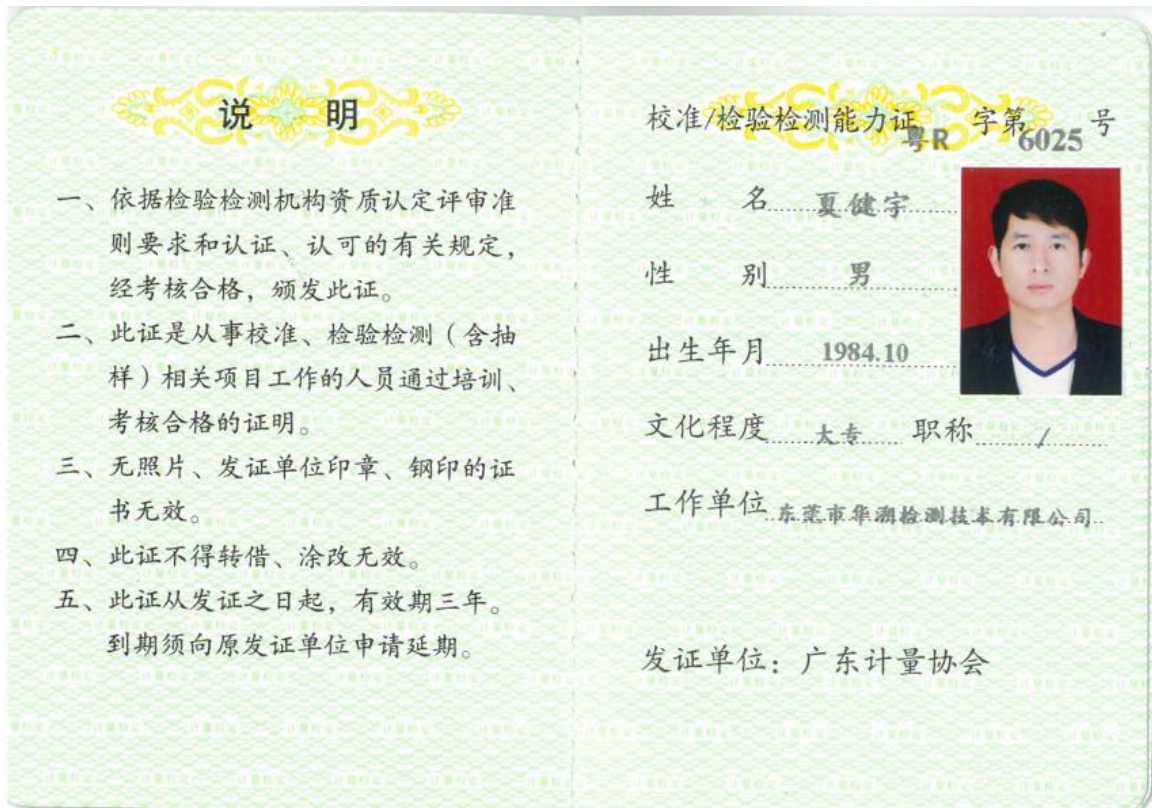 说 明
一、依据检验检测机构资质认定评审准
则要求和认证、认可的有关规定,
经考核合格,颁发此证。
二、此证是从事校准、检验检测(含抽
样)相关项目工作的人员通过培训、
考核合格的证明。
三、无照片、发证单位印章、钢印的证
书无效。
四、此证不得转借、涂改无效。
五、此证从发证之日起,有效期三年。
到期须向原发证单位申请延期。
校准/检验检测能力证 粤R 字第 6025 号
姓 名 夏健宇
性 别 男
出生年月 1984.10
文化程度 大专 职称 /
工作单位 东莞市华溯检测技术有限公司
发证单位:广东计量协会